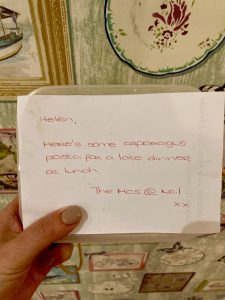 Helen,
Here's some asparagus
pasta for a late dinner
or lunch
The Mcs @ No.1
xx